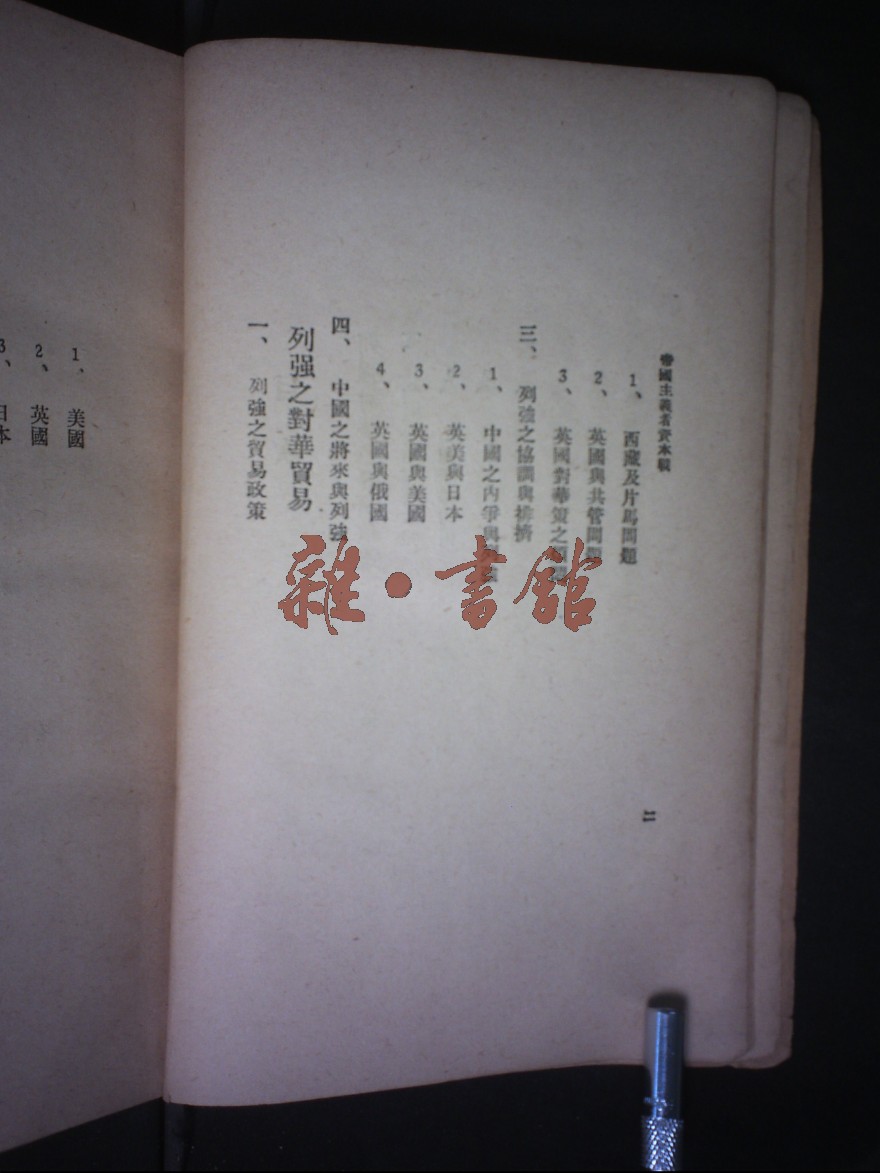 帝國主義者資本戰
1、西藏及片馬問題
2、英國與共管問題
3、英國對華策之
三、列強之協調與排擠
1、中國之內爭與
2、英美與日本
3、英國與美國
4、英國與俄國
四、中國之將來與列強
列强之對華貿易
一、列強之貿易政策
二
1、美國
2、英國
3、日本
雜·書館